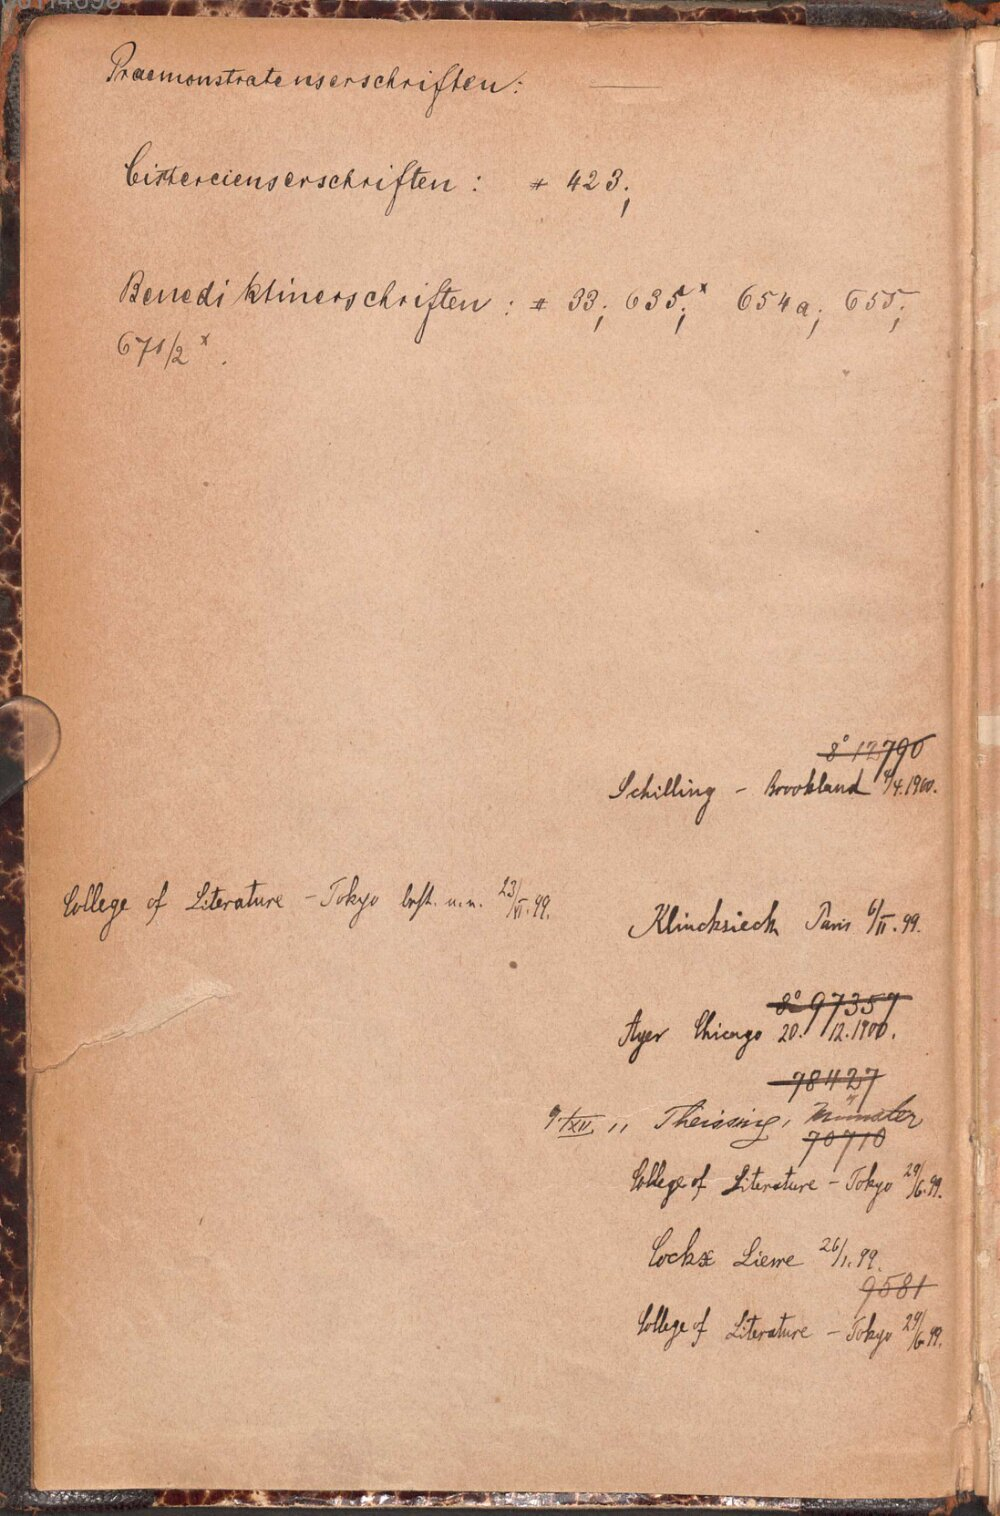 Praemonstratenserschriften: —
Cistercienserschriften: # 423;
Benediktinerschriften: # 33; 635;ˣ 654a; 655;
671/2 ˣ.
8° 12790
Schilling – Brookland 4/4.1900.
College of Literature – Tokyo 23/VI.99.
Klincksieck Paris 6/II.99.
8° 97357
Ayer Chicago 20./12.1900.
78427
9/XII 11 Theissing, Münster
70710
College of Literature – Tokyo 29/6.99.
Cockx Lierre 26/1.99.
9581
College of Literature – Tokyo 29/6.99.